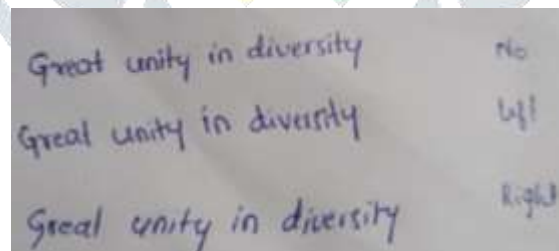 Great unity in diversity No
Great unity in diversity Left
Great unity in diversity Right